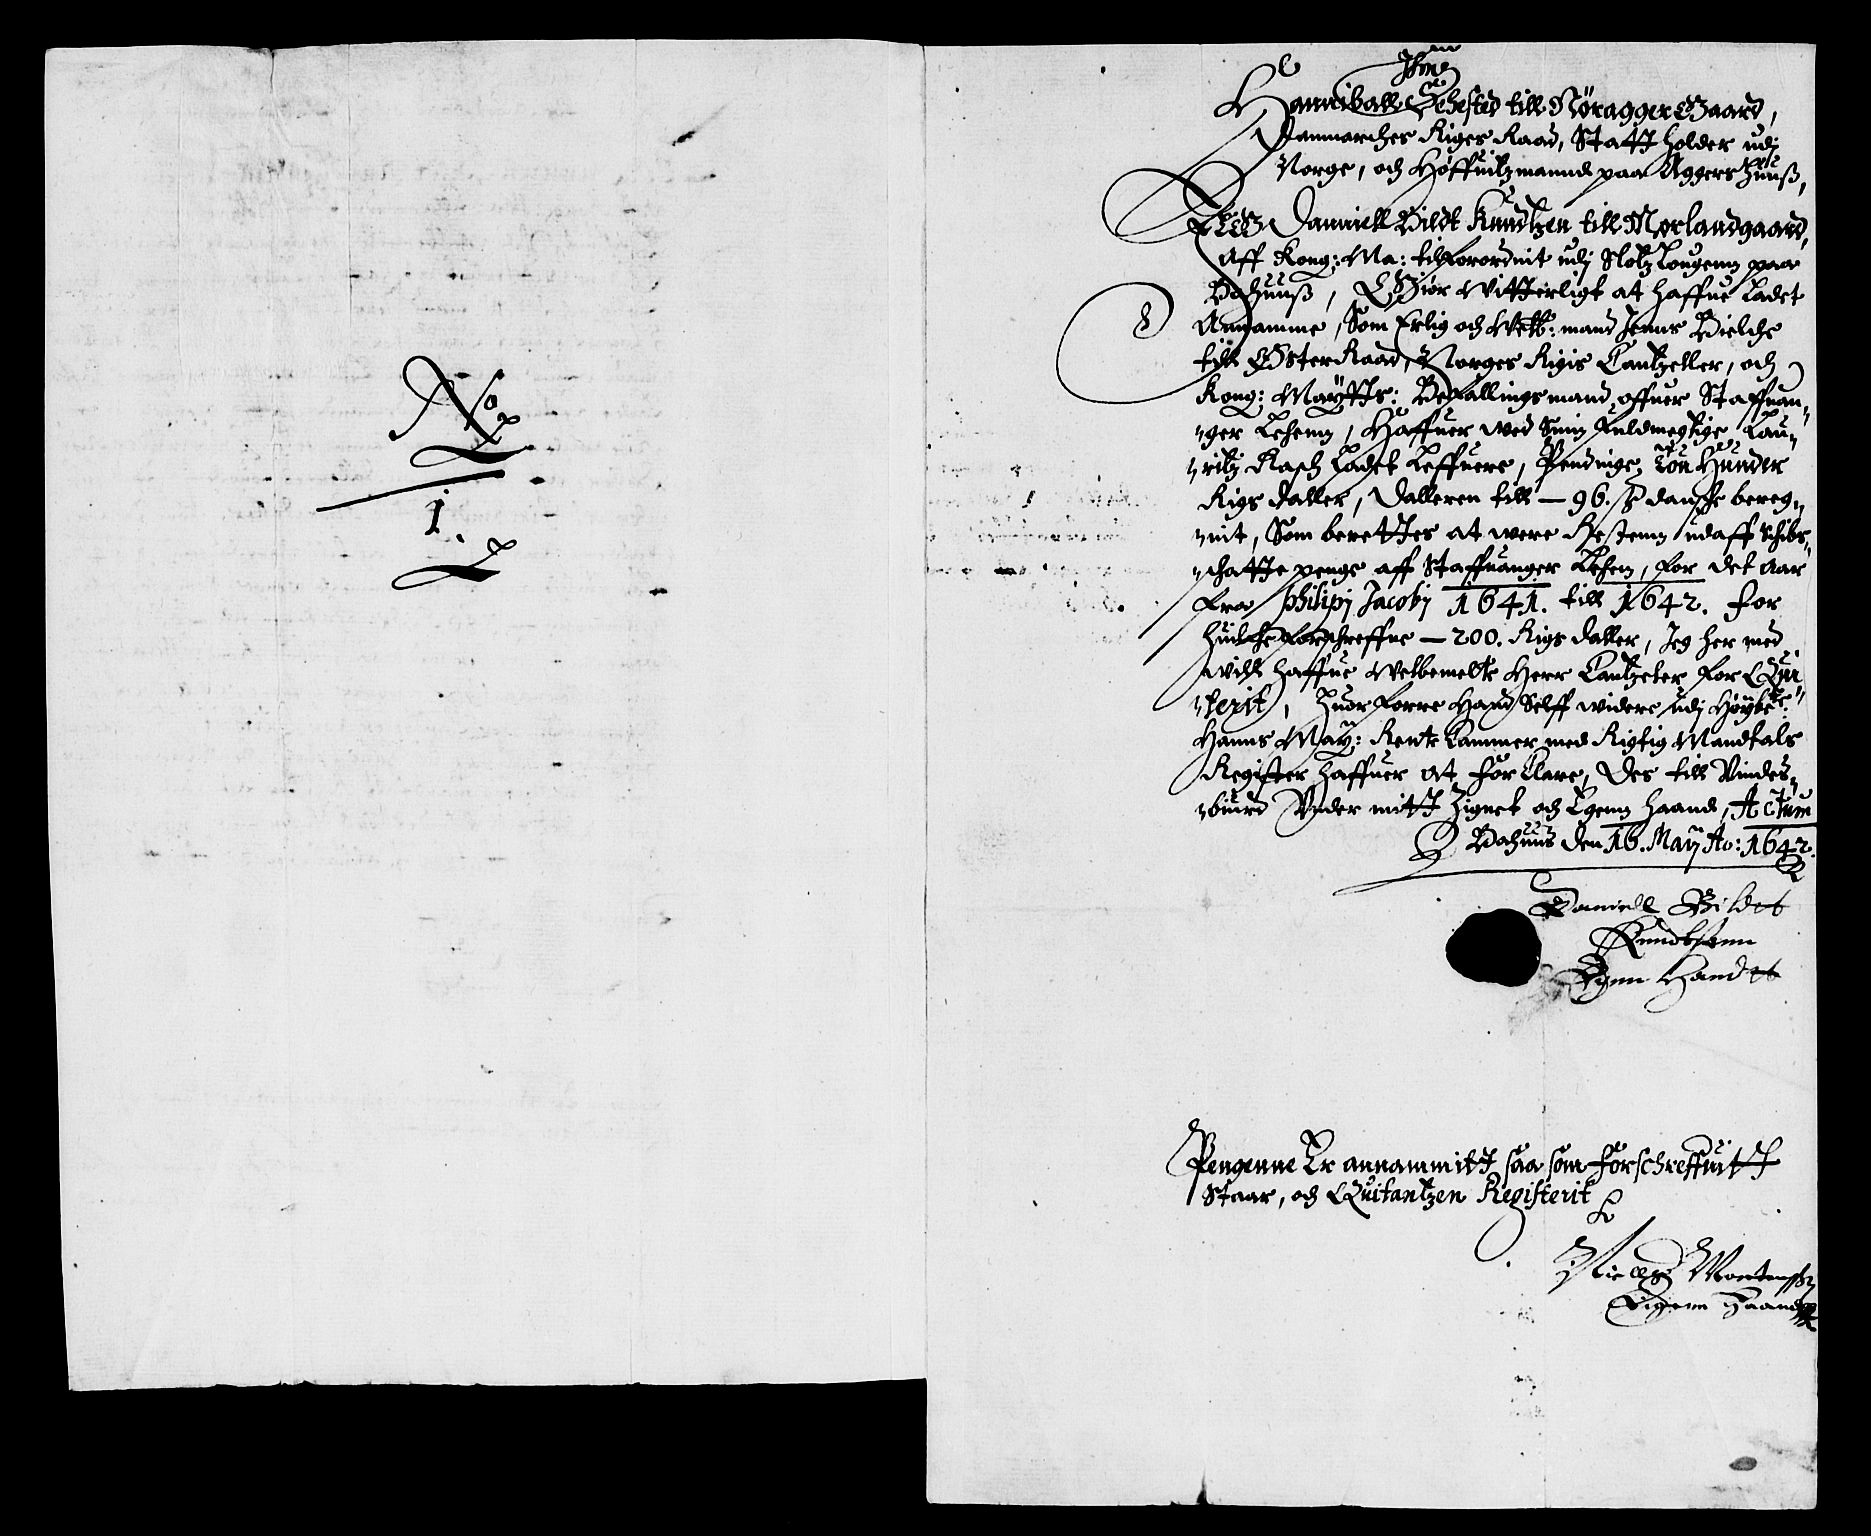 No
1.
Hanniball Sehested till Nøragger Gaard,
Danmarckes Riges Raad, Statt holder udj
Norge, och Høffuitzmannd paa Aggershuuß,
Jeg Danniell Bildt Knudtzen till Morlandgaard,
Aff Kong: Ma: tilforordnit udj Slotz Lougenn paa
Bahuuß, Giør Witterligt at haffue Ladet
Annamme, Som Erlig och Welb: mand Jenns Bielche
till Østerraad, Norges Rigis Cantzeller, och
Kong: Maytts: Befallingsmand offuer Staffuan-
-ger Lehenn, Haffuer wed Sinn fuldmegtige Lau-
-ritz Rasch Ladet Leffuere, Pendinge, Tou Hunder
Rigs daller, Dalleren till — 96. ß danske bereg-
-nit, Som berettes at were Restenn udaff Schibs-
-chatte penge aff Staffuanger Lehen, for det Aar
fra philipj Jacobj 1641. till 1642. for
huilche forschreffne — 200. Rigs daller, Jeg her med
will haffue Welbemelte Herr Cantzeler for Qui-
-terit, huor forre Hand Selff widere udj Høybe.te:
Hanns May: Rente Cammer med Rigtig Mandtals
Register haffuer at forClare, Des till Vindes-
-biurd Vnder mitt Zignet och Egenn haand, Actum
Bahuus den 16. Maij Ao: 1642.
Daniell Bildt
Knudtsenn
Egen Handt
Pengenne Er annammitt saa som forschreffuitt
Staar, och Quitantzen Registerit
Niels Mortenssen
Eigenn haand